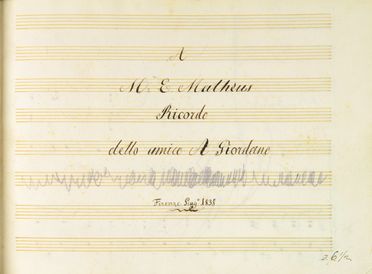 A
M. E. Matheus
Ricordo
dello amico A Giordano
Firenze 1838